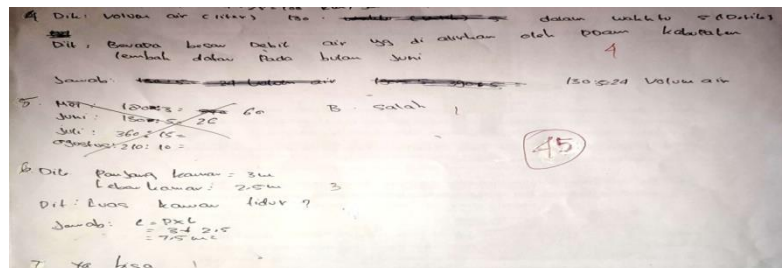 4 Dik: Volume air (liter) 130 dalam waktu 5 (Detik)
Dit: Berapa besar Debit air yg di alirkan oleh PDAM Kabupaten
lembah dalam Pada bulan Juni
4
Jawab: 130:5:24 Volum air
5. Mei: 180:3= 60 B. Salah 1
Juni: 130:5= 26
Juli: 360:15=
Agustus: 210:10=
45
6 Dik Panjang kamar = 3m
Lebar kamar: 2.5m 3
Dit: Luas kamar tidur?
Jawab: L = PxL
= 3x 2.5
= 7.5 m2
7. Ya bisa 1